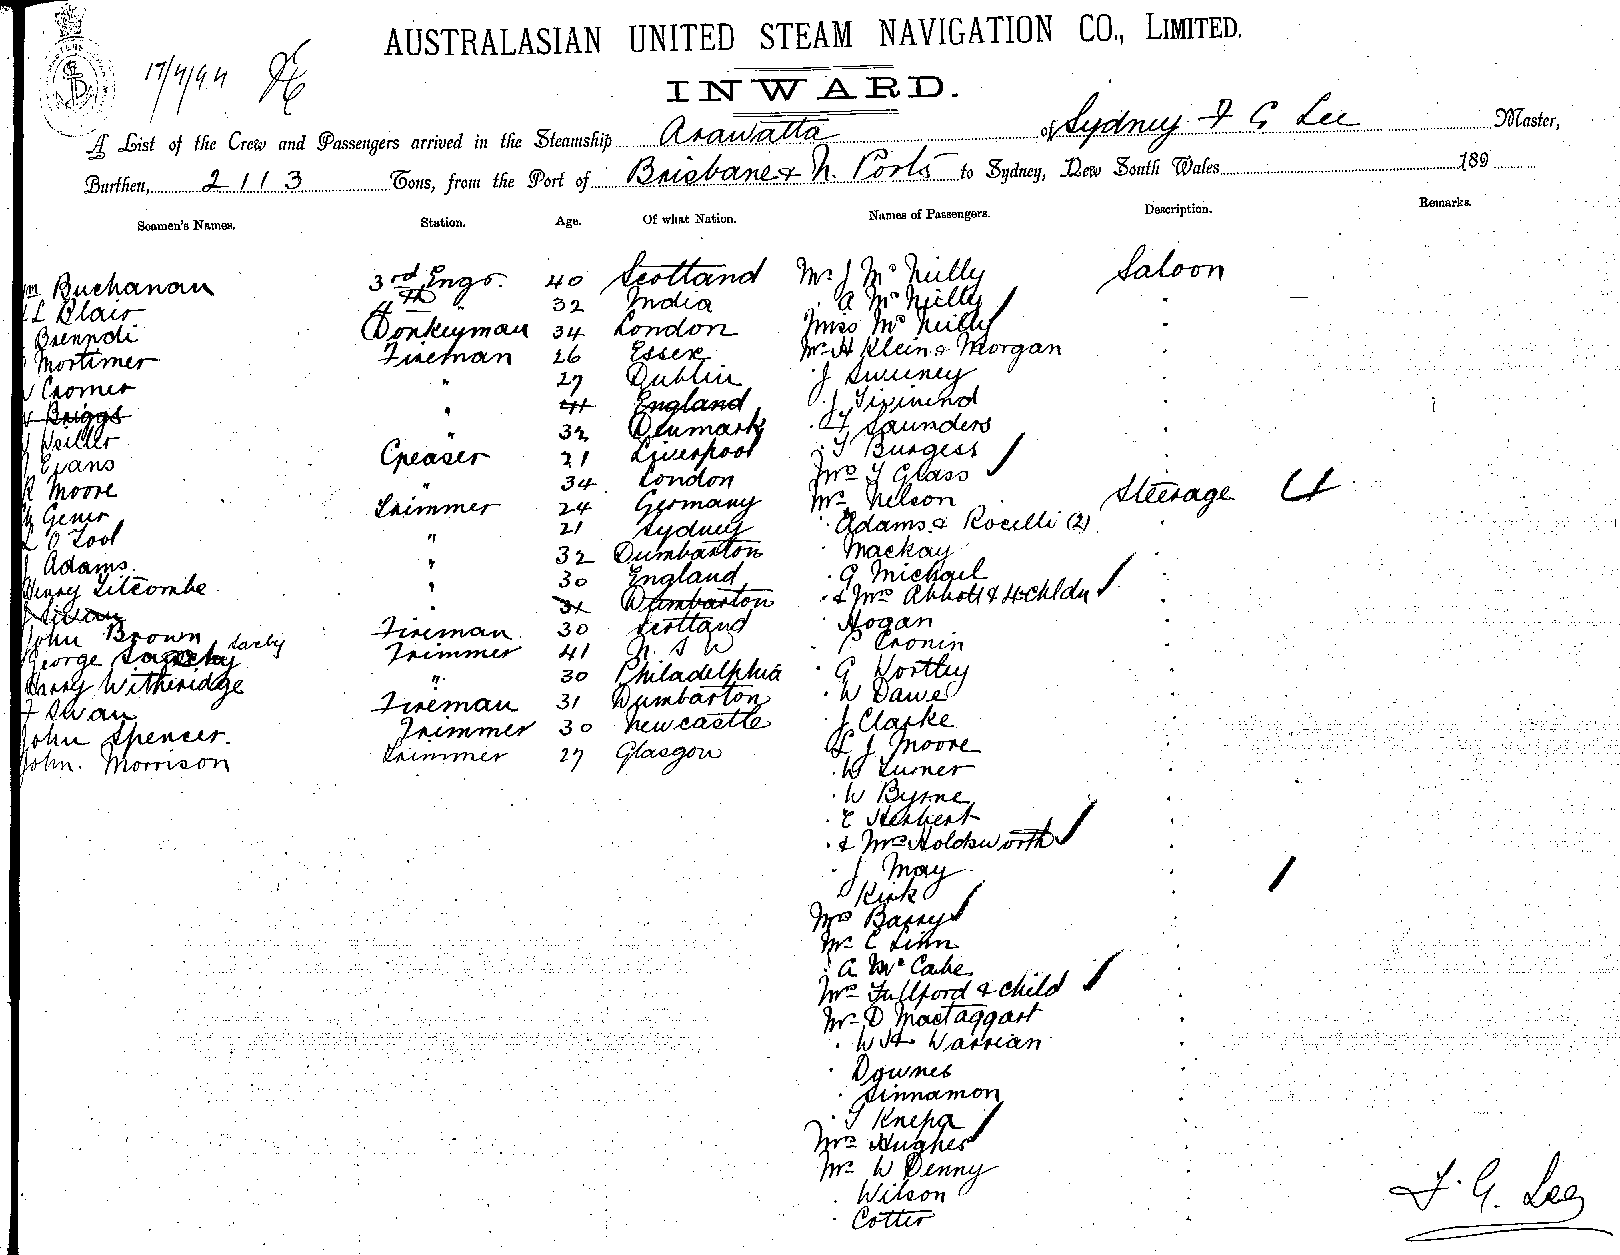 AUSTRALASIAN UNITED STEAM NAVIGATION CO., LIMITED.
17/4/94
INWARD.
A List of the Crew and Passengers arrived in the Steamship Arawatta of Sydney F G Lee Master,
Burthen, 2113 Tons, from the Port of Brisbane & N. Ports to Sydney, New South Wales 189
Seamen's Names. Station. Age. Of what Nation. Names of Passengers. Description. Remarks.
Buchanan 3rd Engr. 40 Scotland Mr J McNeilly Saloon
L Blair 4th " 32 India " A McNeilly
Donkeyman 34 London Miss McNeilly
Mortimer Fireman 26 Essex Mr H Klein & Morgan
Cromer " 27 Dublin " J Sweeney
Briggs " 41 England " J
" 32 Denmark " Saunders
Evans Greaser 21 Liverpool " T Burgess
R Moore " 34 London Mrs Y Glass
Gener Trimmer 24 Germany Mr Nelson Steerage 4
O Tool " 21 Sydney " Adams & Rocelli (2)
J Adams " 32 Dumbarton " Mackay
Henry Titcombe " 30 England " G Michael
" 31 Dumbarton " & Mrs Abbott & 4 chldn
John Brown Fireman 30 Scotland " Hogan
George Darby Trimmer 41 N. S W " P Cronin
Harry Witheridge " 30 Philadelphia " G Wortley
Swan Fireman 31 Dumbarton " W Dawe
John Spencer. Trimmer 30 Newcastle " J Clarke
John. Morrison Trimmer 27 Glasgow " J Moore
" W Turner
" W Byrne
" E Herbert
" & Mrs Holdsworth
" J May
" Kirk
Mrs Barry
Mr C Linn
" A McCabe
Mrs Fullford & child
Mr D MacTaggart
" W H Warrian
" Downes
" Sinnamon
" T Knepa
Mrs Hughes
Mr W Denny
" Wilson
" Cotter
F. G. Lee